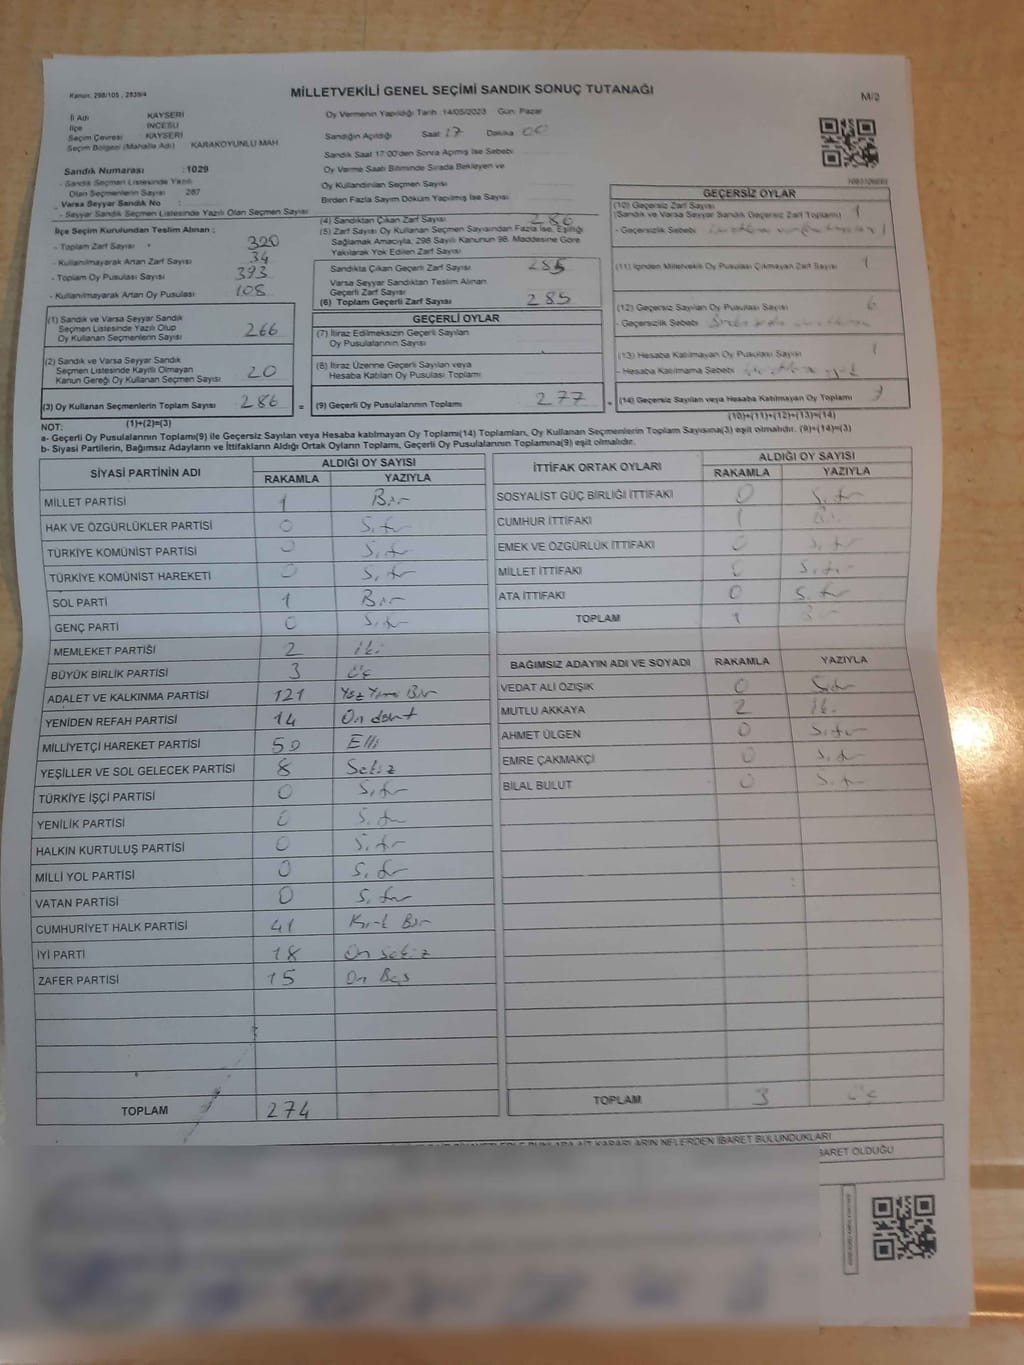 Kanun: 298/105 , 2839/4
MİLLETVEKİLİ GENEL SEÇİMİ SANDIK SONUÇ TUTANAĞI
M/2
İl Adı KAYSERİ
İlçe İNCESU
Seçim Çevresi KAYSERİ
Seçim Bölgesi (Mahalle Adı) KARAKOYUNLU MAH
Sandık Numarası :1029
- Sandık Seçmen Listesinde Yazılı
Olan Seçmenlerin Sayısı 287
Varsa Seyyar Sandık No :
- Seyyar Sandık Seçmen Listesinde Yazılı Olan Seçmen Sayısı
İlçe Seçim Kurulundan Teslim Alınan ;
- Toplam Zarf Sayısı 320
- Kullanılmayarak Artan Zarf Sayısı 34
- Toplam Oy Pusulası Sayısı 393
- Kullanılmayarak Artan Oy Pusulası 108
(1) Sandık ve Varsa Seyyar Sandık
Seçmen Listesinde Yazılı Olup
Oy Kullanan Seçmenlerin Sayısı 266
(2) Sandık ve Varsa Seyyar Sandık
Seçmen Listesinde Kayıtlı Olmayan
Kanun Gereği Oy Kullanan Seçmen Sayısı 20
(3) Oy Kullanan Seçmenlerin Toplam Sayısı 286 =
(1)+(2)=(3)
Oy Vermenin Yapıldığı Tarih :14/05/2023 Gün: Pazar
Sandığın Açıldığı Saat 17 Dakika 00
Sandık Saat 17:00'den Sonra Açılmış İse Sebebi
Oy Verme Saati Bitiminde Sırada Bekleyen ve
Oy Kullandırılan Seçmen Sayısı
Birden Fazla Sayım Döküm Yapılmış İse Sayısı
(4) Sandıktan Çıkan Zarf Sayısı 286
(5) Zarf Sayısı Oy Kullanan Seçmen Sayısından Fazla İse, Eşitliği
Sağlamak Amacıyla, 298 Sayılı Kanunun 98. Maddesine Göre
Yakılarak Yok Edilen Zarf Sayısı
Sandıkta Çıkan Geçerli Zarf Sayısı 285
Varsa Seyyar Sandıktan Teslim Alınan
Geçerli Zarf Sayısı
(6) Toplam Geçerli Zarf Sayısı 285
GEÇERLİ OYLAR
(7) İtiraz Edilmeksizin Geçerli Sayılan
Oy Pusulalarının Sayısı
(8) İtiraz Üzerine Geçerli Sayılan veya
Hesaba Katılan Oy Pusulası Toplamı
(9) Geçerli Oy Pusulalarının Toplamı 277 +
GEÇERSİZ OYLAR
(10) Geçersiz Zarf Sayısı 1
(Sandık ve Varsa Seyyar Sandık Geçersiz Zarf Toplamı)
- Geçersizlik Sebebi
(11) İçinden Milletvekili Oy Pusulası Çıkmayan Zarf Sayısı 1
(12) Geçersiz Sayılan Oy Pusulası Sayısı 6
- Geçersizlik Sebebi
(13) Hesaba Katılmayan Oy Pusulası Sayısı 1
- Hesaba Katılmama Sebebi
(14) Geçersiz Sayılan veya Hesaba Katılmayan Oy Toplamı
(10)+(11)+(12)+(13)=(14)
NOT:
a- Geçerli Oy Pusulalarının Toplamı(9) ile Geçersiz Sayılan veya Hesaba katılmayan Oy Toplamı(14) Toplamları, Oy Kullanan Seçmenlerin Toplam Sayısına(3) eşit olmalıdır. (9)+(14)=(3)
b- Siyasi Partilerin, Bağımsız Adayların ve İttifakların Aldığı Ortak Oyların Toplamı, Geçerli Oy Pusulalarının Toplamına(9) eşit olmalıdır.
SİYASİ PARTİNİN ADI ALDIĞI OY SAYISI
RAKAMLA YAZIYLA
MİLLET PARTİSİ 1 Bir
HAK VE ÖZGÜRLÜKLER PARTİSİ 0 Sıfır
TÜRKİYE KOMÜNİST PARTİSİ 0 Sıfır
TÜRKİYE KOMÜNİST HAREKETİ 0 Sıfır
SOL PARTİ 1 Bir
GENÇ PARTİ 0 Sıfır
MEMLEKET PARTİSİ 2 iki
BÜYÜK BİRLİK PARTİSİ 3 üç
ADALET VE KALKINMA PARTİSİ 121 Yüz Yirmi Bir
YENİDEN REFAH PARTİSİ 14 On dört
MİLLİYETÇİ HAREKET PARTİSİ 50 Elli
YEŞİLLER VE SOL GELECEK PARTİSİ 8 Sekiz
TÜRKİYE İŞÇİ PARTİSİ 0 Sıfır
YENİLİK PARTİSİ 0 Sıfır
HALKIN KURTULUŞ PARTİSİ 0 Sıfır
MİLLİ YOL PARTİSİ 0 Sıfır
VATAN PARTİSİ 0 Sıfır
CUMHURİYET HALK PARTİSİ 41 Kırk Bir
İYİ PARTİ 18 On Sekiz
ZAFER PARTİSİ 15 On Beş
TOPLAM 274
İTTİFAK ORTAK OYLARI ALDIĞI OY SAYISI
RAKAMLA YAZIYLA
SOSYALİST GÜÇ BİRLİĞİ İTTİFAKI 0 Sıfır
CUMHUR İTTİFAKI 1 Bir
EMEK VE ÖZGÜRLÜK İTTİFAKI 0 Sıfır
MİLLET İTTİFAKI 0 Sıfır
ATA İTTİFAKI 0 Sıfır
TOPLAM 1 Bir
BAĞIMSIZ ADAYIN ADI VE SOYADI RAKAMLA YAZIYLA
VEDAT ALİ ÖZIŞIK 0 Sıfır
MUTLU AKKAYA 2 iki
AHMET ÜLGEN 0 Sıfır
EMRE ÇAKMAKÇİ 0 Sıfır
BİLAL BULUT 0 Sıfır
TOPLAM 3 üç
KARARLARIN NELERDEN İBARET BULUNDUKLARI
BARET OLDUĞU